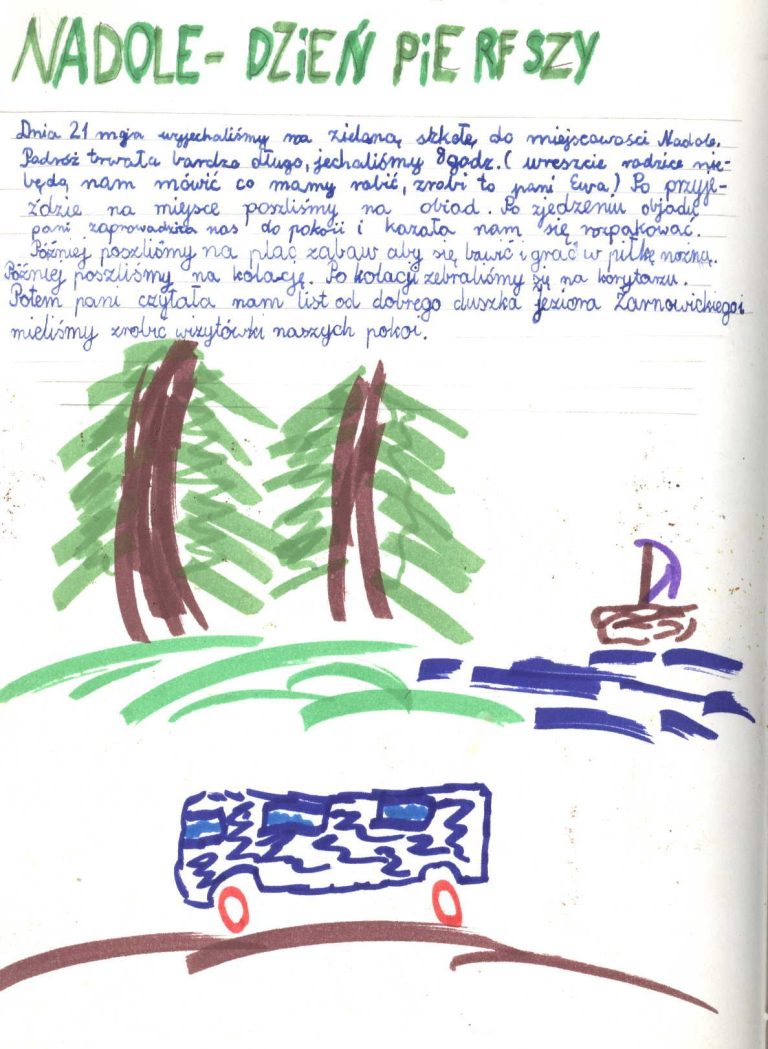 NADOLE- DZIEŃ PIERFSZY
Dnia 21 maja wyjechaliśmy na zieloną szkołę do miejscowości Nadole.
Podróż trwała bardzo długo, jechaliśmy 8 godz. ( wreszcie rodzice nie-
będą nam mówić co mamy robić, zrobi to pani Ewa) Po przyje-
ździe na miejsce poszliśmy na obiad. Po zjedzeniu objadu
pani zaprowadziła nas do pokoii i kazała nam się rozpakować.
Później poszliśmy na plac zabaw aby się bawić i grać w piłkę nożną.
Później poszliśmy na kolację. Po kolacji zebraliśmy się na korytarzu.
Potem pani czytała nam list od dobrego duszka jeziora Żarnowickiego i
mieliśmy zrobić wizytówki naszych pokoi.